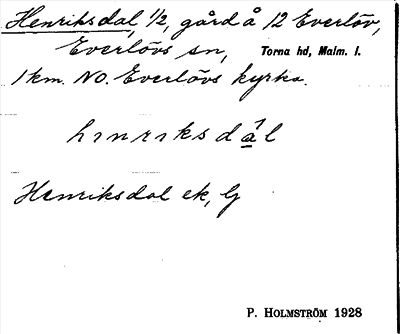 Henriksdal, 1/2, gård å 12 Everlöv,
Everlövs sn, Torna hd, Malm. l.
1 km. NO. Everlövs kyrka.
hinriksdál
Henriksdal ek, G
P. HOLMSTRÖM 1928